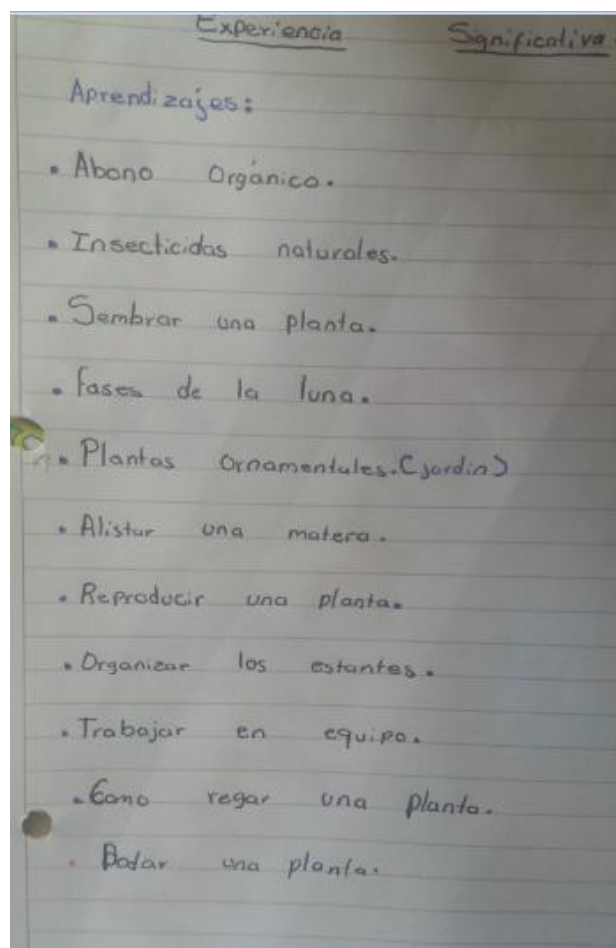 Experiencia Significativa.
Aprendizajes:
• Abono Orgánico.
• Insecticidas naturales.
• Sembrar una planta.
• fases de la luna.
• Plantas Ornamentales. (jardin)
• Alistar una matera.
• Reproducir una planta.
• Organizar los estantes.
• Trabajar en equipo.
• Como regar una planta.
• una planta.